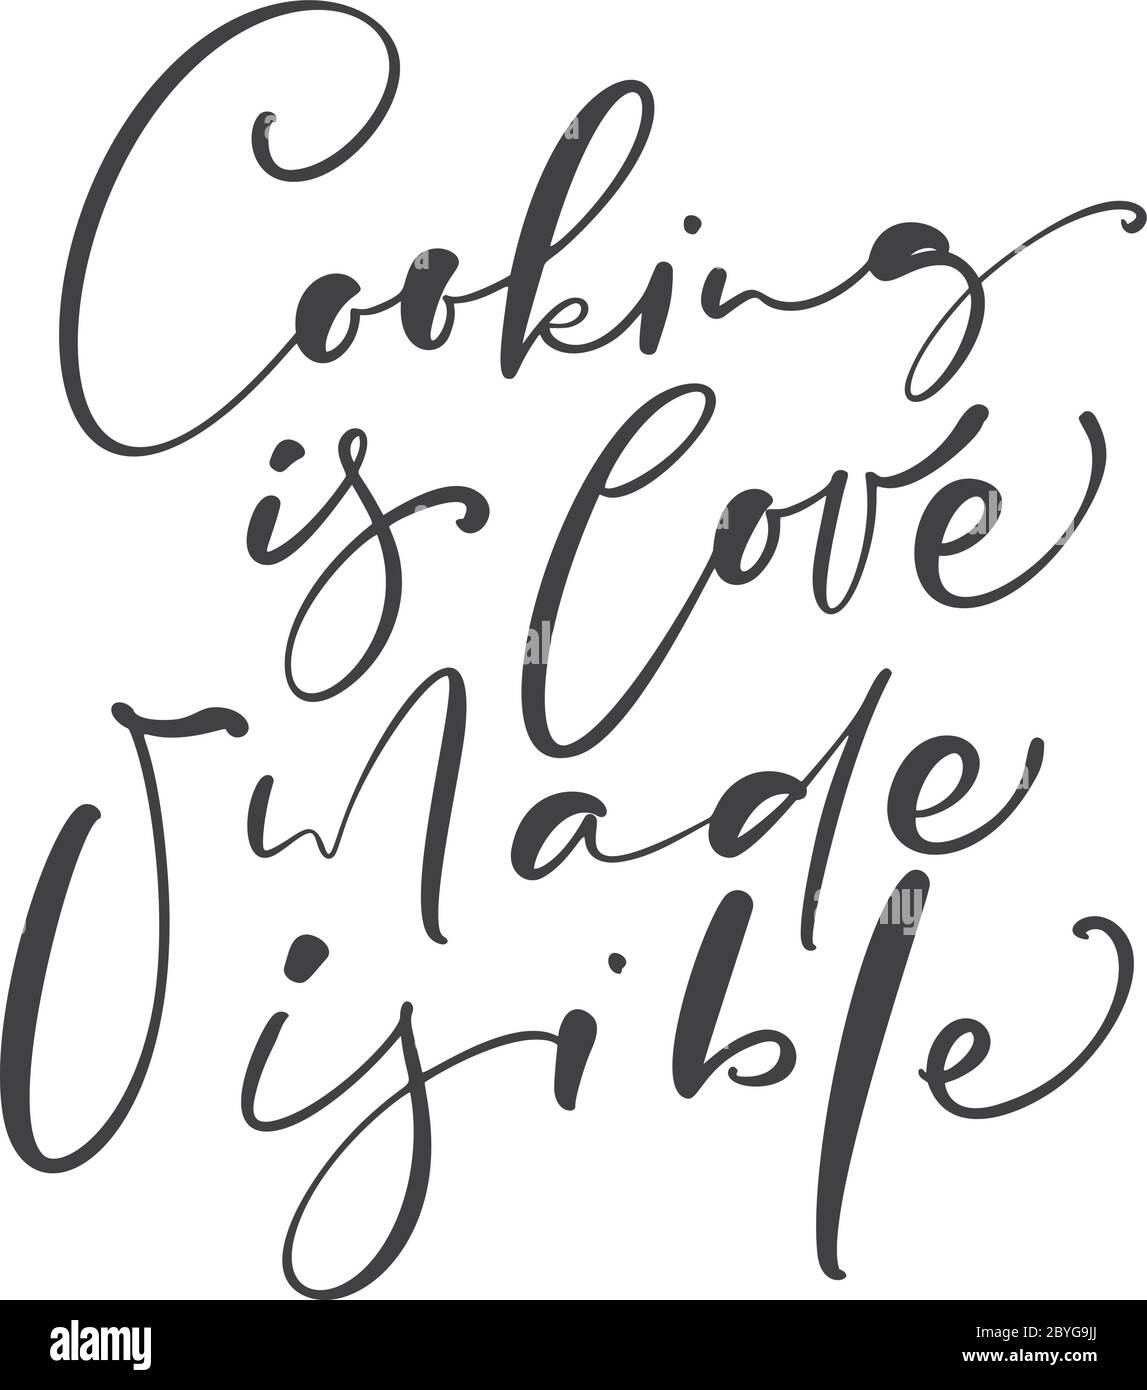 Cooking
is love
Made
Visible
alamy
Image ID: 2BYG9JJ
www.alamy.com